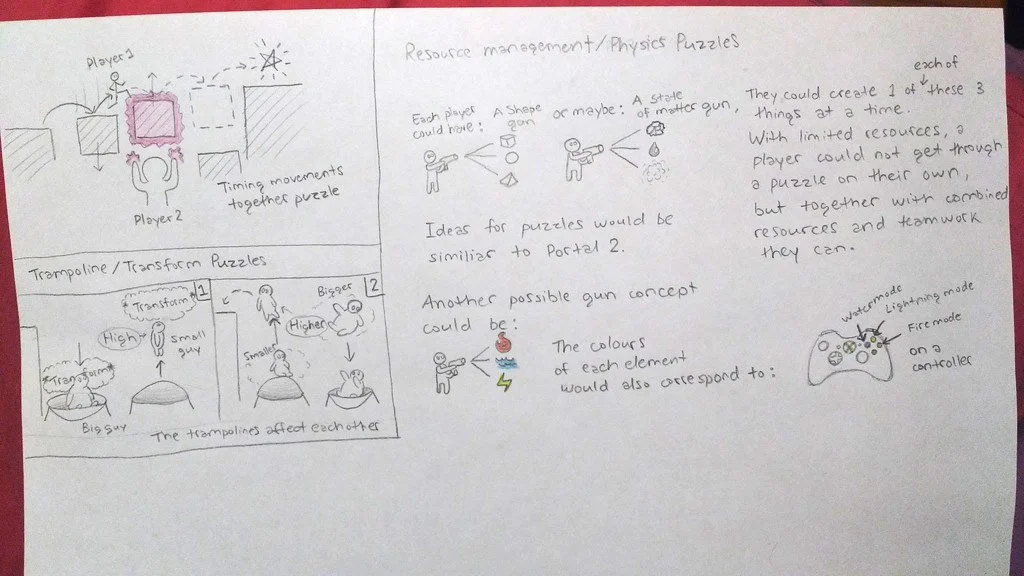 Player 1
Player 2
Timing movements
together puzzle
Trampoline/Transform Puzzles
1
*Transform*
High
small
guy
*Transform*
Big guy
2
Bigger
Higher
Smaller
The trampolines affect each other
Resource management/Physics Puzzles
Each player
could have:
A Shape
gun
or maybe:
A state
of matter gun,
Ideas for puzzles would be
similiar to Portal 2.
Another possible gun concept
could be:
The colours
of each element
would also correspond to:
each of
They could create 1 of these 3
things at a time.
With limited resources, a
player could not get through
a puzzle on their own,
but together with combined
resources and teamwork
they can.
Water mode
Lightning mode
Fire mode
on a
controller